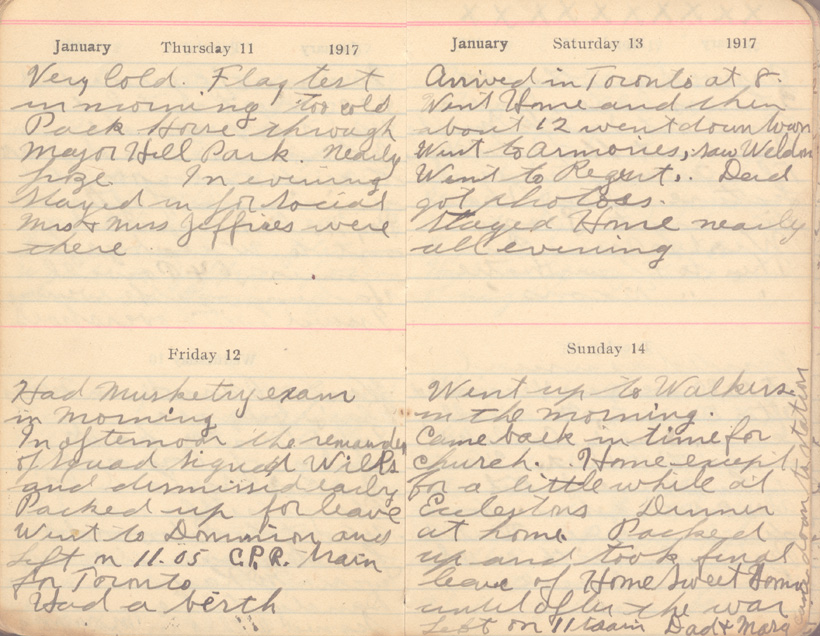 January Thursday 11 1917
Very Cold. Flag test
in morning too cold
Pack Horse through
Major Hill Park. nearly
froze. In evening
stayed in for social
Mrs & Miss Jeffries were
there
Friday 12
Had Musketry exam
in morning
In afternoon the remainder
of squad signed Wilks
and dismissed early
Packed up for leave
Went to Dominion and
left on 11.05 C.P.R. train
for Toronto
Had a birth
January Saturday 13 1917
Arrived in Toronto at 8.
Went Home and then
about 12 went down town
Went to Armories, saw Weldon
Went to Regent. Dad
got photos.
Stayed Home nearly
all evening
Sunday 14
Went up to Walkers
in the morning.
Came back in time for
church. Home except
for a little while at
Ecclestons Dinner
at home Packed
up and took final
leave of Home Sweet Home
until after the war
Left on 11 train Dad & Marg
came down to station